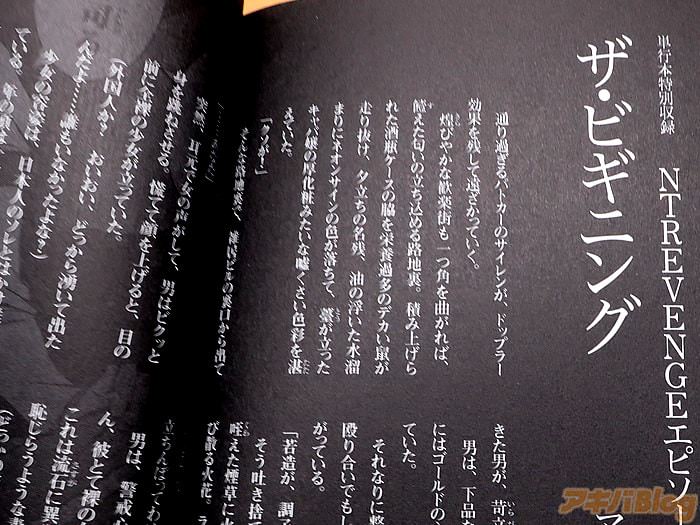 単行本特別収録
NTREVENGEエピソー
ザ・ビギニング
通り過ぎるパーカーのサイレンが、ドップラー
効果を残して遠ざかっていく。
煌びやかな歓楽街も一つ角を曲がれば、
饐えた匂いの立ち込める路地裏。積み上げら
れた酒瓶ケースの脇を栄養過多のデカい鼠が
走り抜け、夕立ちの名残、油の浮いた水溜
まりにネオンサインの色が落ちて、薹が立った
キャバ嬢の厚化粧みたいな嘘くさい色彩を湛
えていた。
「クソが！」
そんな路地裏へ、雑居ビルの裏口から出て
きた男が、苛立
男は、下品な
にはゴールドの、
ていた。
それなりに整
殴り合いでもし
がっている。
「若造が、調子
そう吐き捨て
咥えた煙草に火
び散る火花。ラ
突然、耳元で女の声がして、男はビクッと
身を跳ねさせる。慌てて顔を上げると、目の
前に全裸の少女が立っていた。
（外国人か？　おいおい、どっから湧いて出た
んだよ……誰もいなかったよな？）
少女の容姿は、日本人のソレとはかけ離
立ちんぼだってわ
男は、警戒心
ん、彼とて裸の
これは流石に異
恥じらうような素
アキバBlog